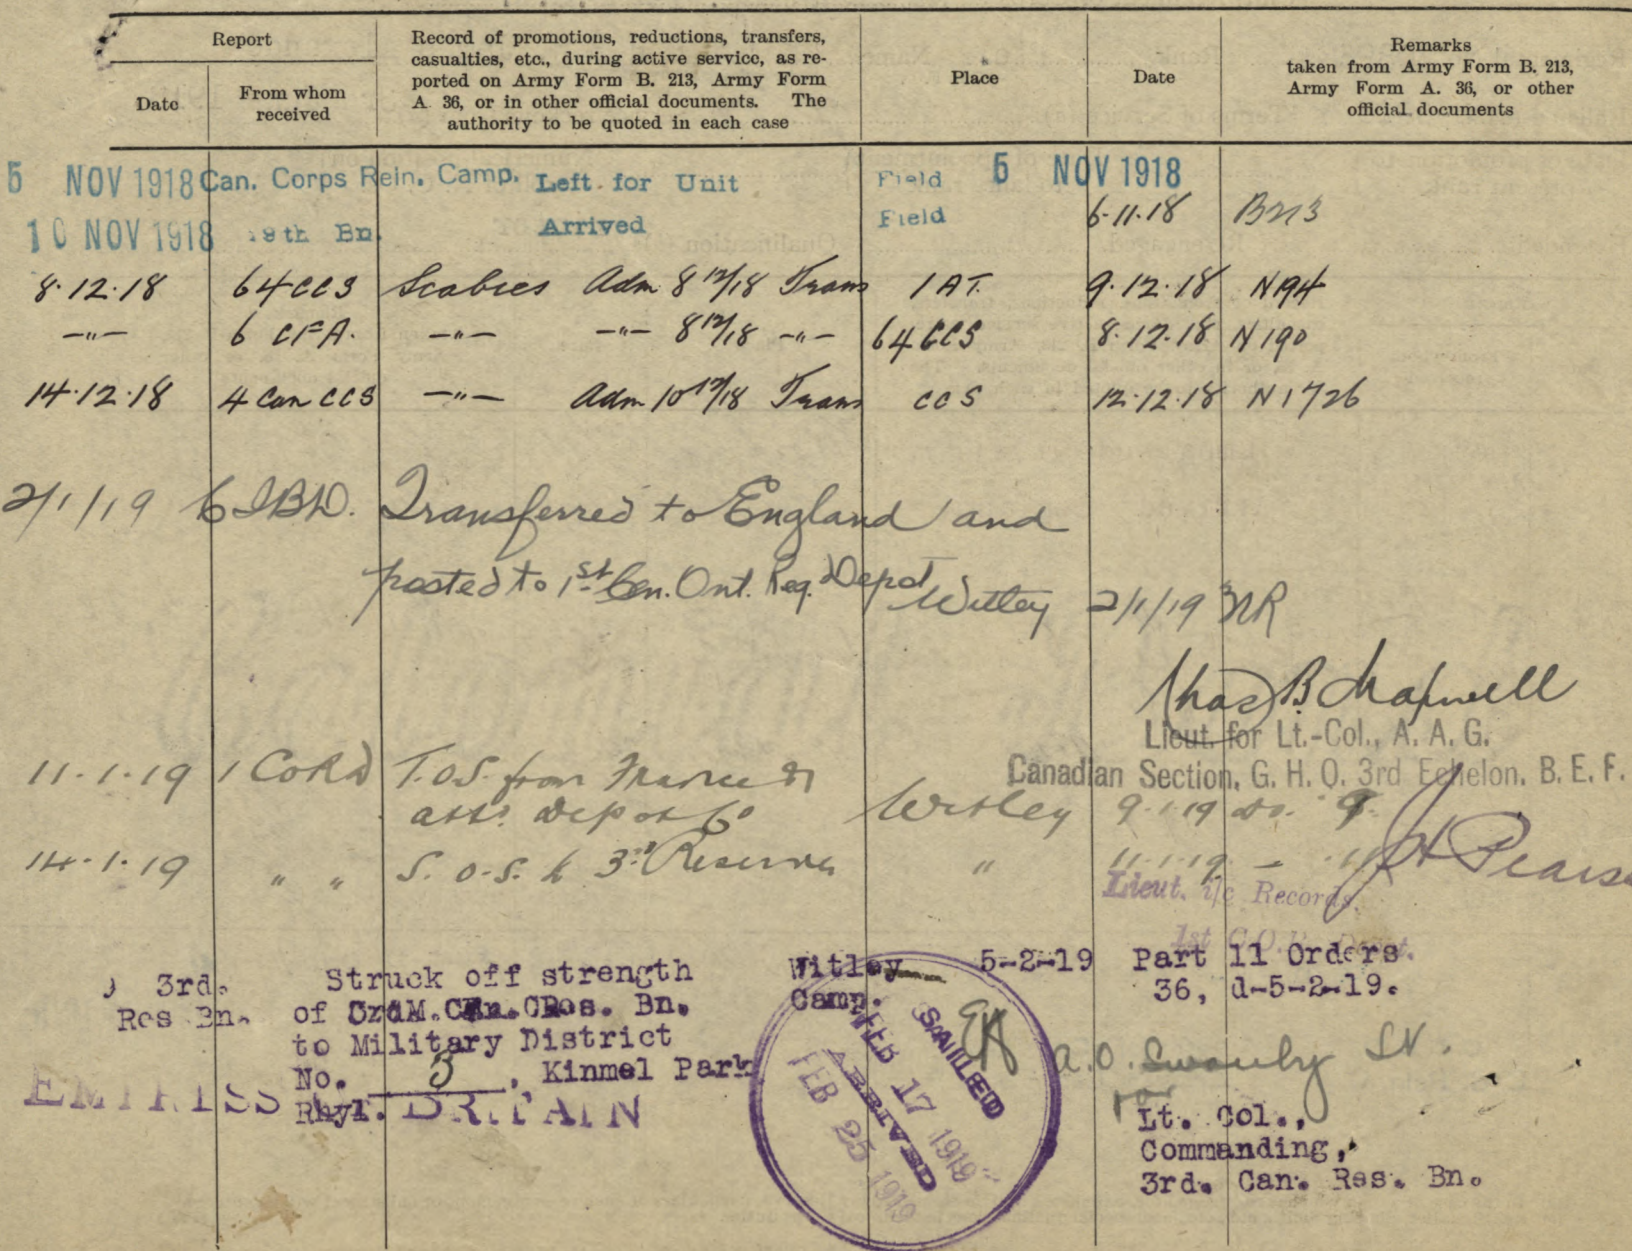 Report
Date
From whom received
Record of promotions, reductions, transfers,
casualties, etc., during active service, as re-
ported on Army Form B. 213, Army Form
A. 36, or in other official documents. The
authority to be quoted in each case
Place
Date
Remarks
taken from Army Form B. 213,
Army Form A. 36, or other
official documents
5 NOV 1918 Can. Corps Rein. Camp. Left for Unit Field 5 NOV 1918
10 NOV 1918 19th Bn. Arrived Field 6.11.18 B213
8.12.18 64 CCS Scabies Adm 8 12/18 Trans 1 AT. 9.12.18 N194
-"- 6 CFA. -"- -"- 8 12/18 -"- 64 CCS 8.12.18 N190
14.12.18 4 Can CCS -"- Adm 10 12/18 Trans CCS 12.12.18 N1726
2/1/19 CIBD. Transferred to England and
posted to 1st Cen. Ont. Reg. Depot Witley 2/1/19 NR
Chas B
Lieut. for Lt.-Col., A. A. G.
Canadian Section, G. H. Q. 3rd Echelon. B. E. F.
11.1.19 1 CORD T.O.S. from France &
att. Depot Co Witley 9.1.19 do. 9
14.1.19 " " S.O.S. to 3rd Reserve " 11.1.19 -
Pearso
Lieut. i/c Records.
3rd. Struck off strength Witley 5-2-19 Part 11 Orders.
Res Bn. of Can. Res. Bn. Camp. 36, d-5-2-19.
to Military District
No. 3, Kinmel Park
Rhyl.
SAILED
FEB 17 1919
ARRIVED
FEB 25 1919
EMPRESS BRITAIN
for
Lt. Col.,
Commanding,
3rd. Can. Res. Bn.